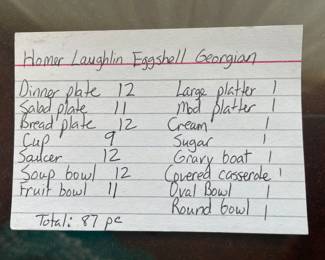 Homer Laughlin Eggshell Georgian
Dinner plate 12
Salad plate 11
Bread plate 12
Cup 9
Saucer 12
Soup bowl 12
Fruit bowl 11
Total: 87 pc
Large platter 1
Med platter 1
Cream 1
Sugar 1
Gravy boat 1
Covered casserole 1
Oval Bowl 1
Round bowl 1